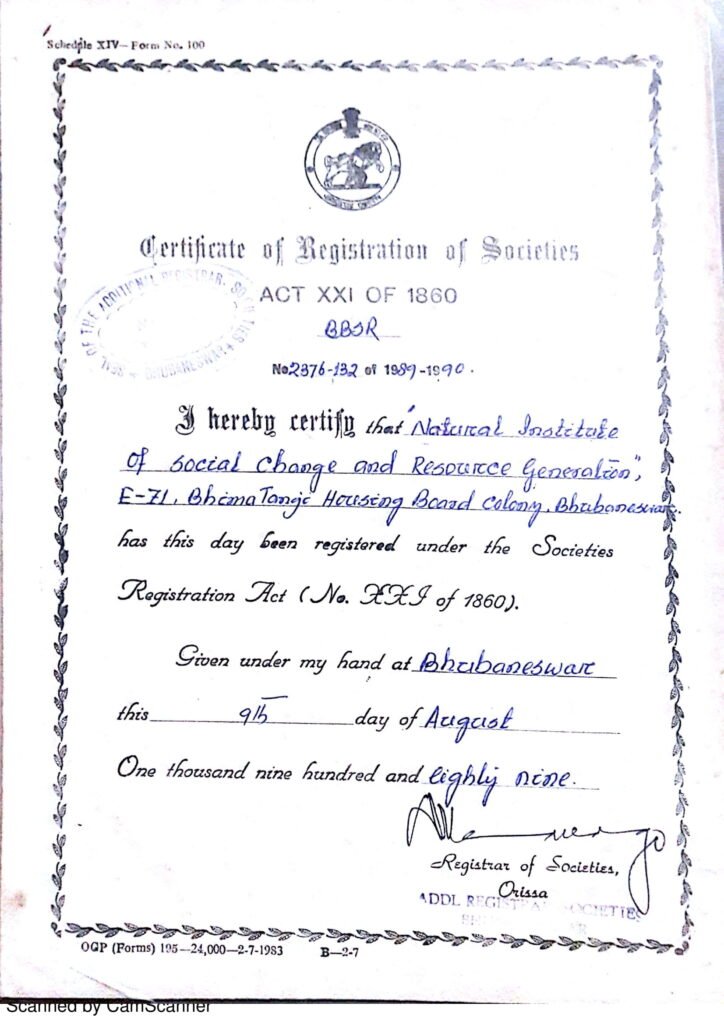 Schedule XIV—Form No. 100
Certificate of Registration of Societies
SEAL OF THE ADDITIONAL REGISTRAR SOCIETIES BHUBANESWAR
ACT XXI OF 1860
BBSR
No 2376-132 of 1989-1990.
I hereby certify that "Natural Institute
of Social Change and Resource Generation",
E-71, BhimaTangi Housing Board Colony, Bhubaneswar.
has this day been registered under the Societies
Registration Act (No. XXI of 1860).
Given under my hand at Bhubaneswar
this 9th day of August
One thousand nine hundred and eighty nine.
Registrar of Societies,
Orissa
ADDL REGISTRAR SOCIETIES
OGP (Forms) 195—24,000—2-7-1983 B—2-7
Scanned by CamScanner